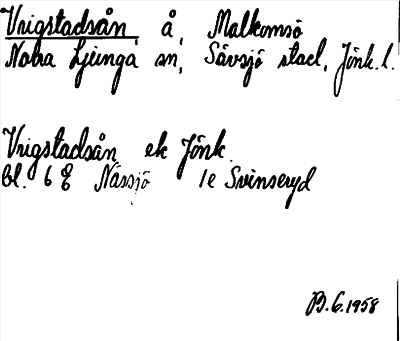 Vrigstadsån, å, Malkomsö
Norra Ljunga sn, Sävsjö stad, Jönk. l.
Vrigstadsån ek Jönk.
Bl. 6 E Nässjö 1e Svinseryd
B.G.1958